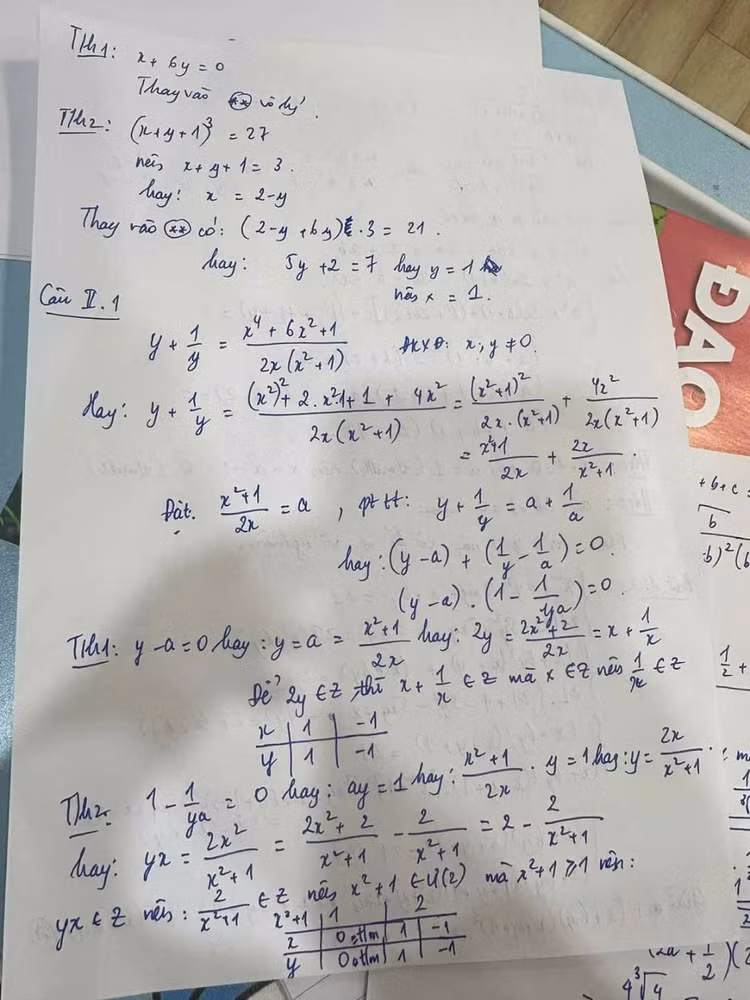 Th1: x + 6y = 0
Thay vào (**) vô lý.
Th2: (x+y+1)³ = 27
nên x + y + 1 = 3.
hay: x = 2-y
Thay vào (**) có: (2-y+6y).3 = 21.
hay: 5y + 2 = 7 hay y = 1
nên x = 1.
Câu II.1
y + 1/y = (x⁴ + 6x² + 1)/(2x(x²+1)) ĐKXĐ: x, y ≠ 0.
Hay: y + 1/y = ((x²)² + 2.x².1 + 1 + 4x²)/(2x(x²+1)) = (x²+1)²/(2x.(x²+1)) + 4x²/(2x(x²+1))
= (x²+1)/2x + 2x/(x²+1).
Đặt. (x²+1)/2x = a, pt tt: y + 1/y = a + 1/a
hay: (y-a) + (1/y - 1/a) = 0.
(y-a).(1 - 1/ya) = 0.
Th1: y-a=0 hay: y=a = (x²+1)/2x hay: 2y = (2x²+2)/2x = x + 1/x
Để 2y ∈ Z thì x + 1/x ∈ Z mà x ∈ Z nên 1/x ∈ Z
x | 1 | -1
y | 1 | -1
Th2: 1 - 1/ya = 0 hay: ay = 1 hay: (x²+1)/2x . y = 1 hay: y = 2x/(x²+1).
hay: yx = 2x²/(x²+1) = (2x²+2)/(x²+1) - 2/(x²+1) = 2 - 2/(x²+1)
yx ∈ Z nên: 2/(x²+1) ∈ Z nên x²+1 ∈ Ư(2) mà x²+1 ≥ 1 nên:
x²+1 | 1 | 2
x | 0.tlm | 1 | -1
y | 0.tlm | 1 | -1
ĐÀO
+ b + c =
b
b)²(b
1/2 +
(2a + 1/2)(2
4³√4